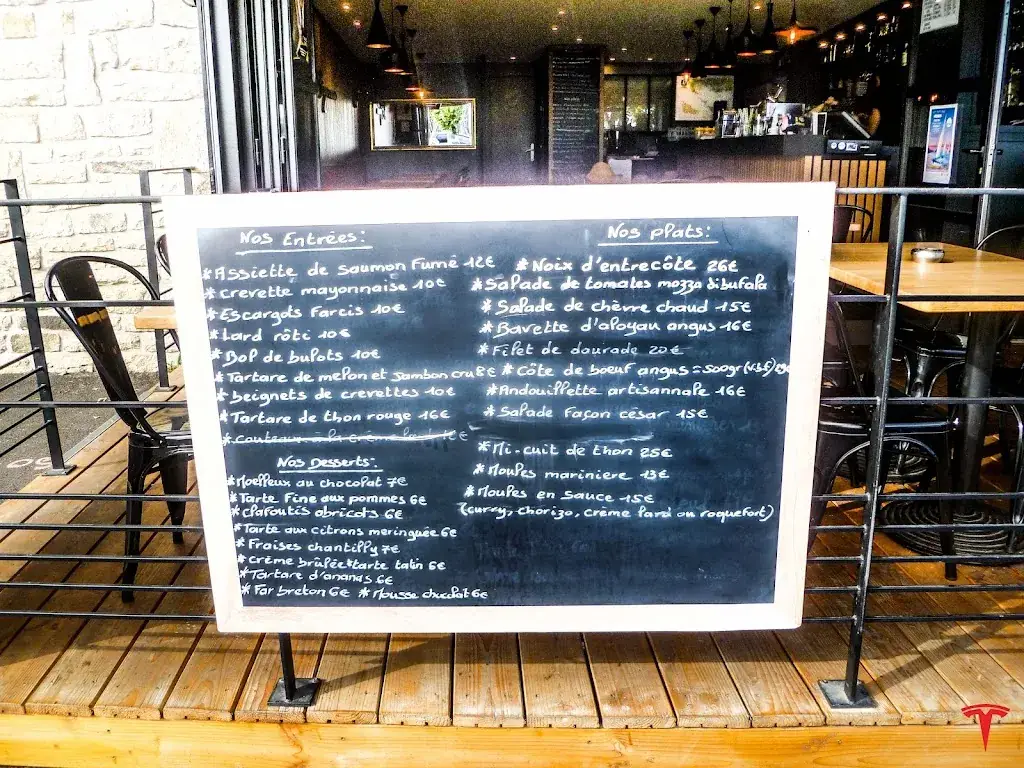 Nos Entrées:
*Assiette de saumon Fumé 12€
*crevette mayonnaise 10€
*Escargots Farcis 10€
*Lard rôti 10€
*Bol de bulots 10€
*Tartare de melon et jambon cru 8€
*beignets de crevettes 10€
*Tartare de thon rouge 16€
*couteaux a la crème
Nos Desserts:
*Moelleux au chocolat 7€
*Tarte Fine aux pommes 6€
*Clafoutis abricots 6€
*Tarte aux citrons meringuée 6€
*Fraises chantilly 7€
*Crème brûlée*tarte tatin 6€
*Tartare d'ananas 6€
*Far breton 6€ *Mousse chocolat 6€
Nos plats:
*Noix d'entrecôte 26€
*Salade de tomates mozza di bufala
*Salade de chèvre chaud 15€
*Bavette d'aloyau angus 16€
*Filet de daurade 20€
*Côte de boeuf angus = 500gr
*Andouillette artisannale 16€
*Salade Façon césar 15€
*Mi-cuit de thon 25€
*Moules mariniere 13€
*Moules en sauce 15€
(curry, chorizo, crème lard ou roquefort)